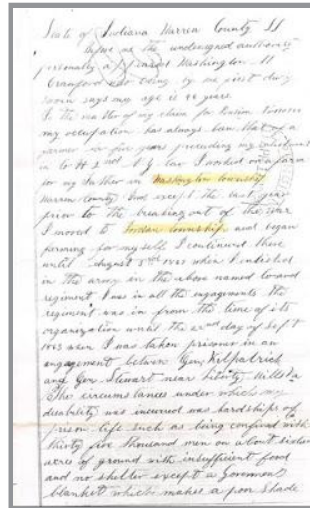 State of Indiana Warren County SS
Before me the undersigned authority
personally appeared Washington H
Crawford who being by me first duly
sworn says my age is 46 years
In the matter of my claim for Pension
my occupation has always been that of a
farmer for five years preceding my enlistment
in Co H 2nd Cav I worked on a farm
for my Father in Washington township
Warren County Ind, except the last year
prior to the breaking out of the war
I moved to Jordan township and began
farming for my self I continued there
until August 8 when I enlisted
in the army in the above named Co and
regiment I was in all the engagements the
regiment was in from the time of its
organization until the 22nd day of Sept
1863 when I was taken prisoner in an
engagement between Gen Kilpatrick
and Gen Stewart near Liberty Mills Va
The circumstances under which my
disability was incurred was hardships of
prison life such as being confined with
thirty five thousand men on about sixteen
acres of ground with insufficient food
and no shelter except a Government
blanket which makes a poor Shade